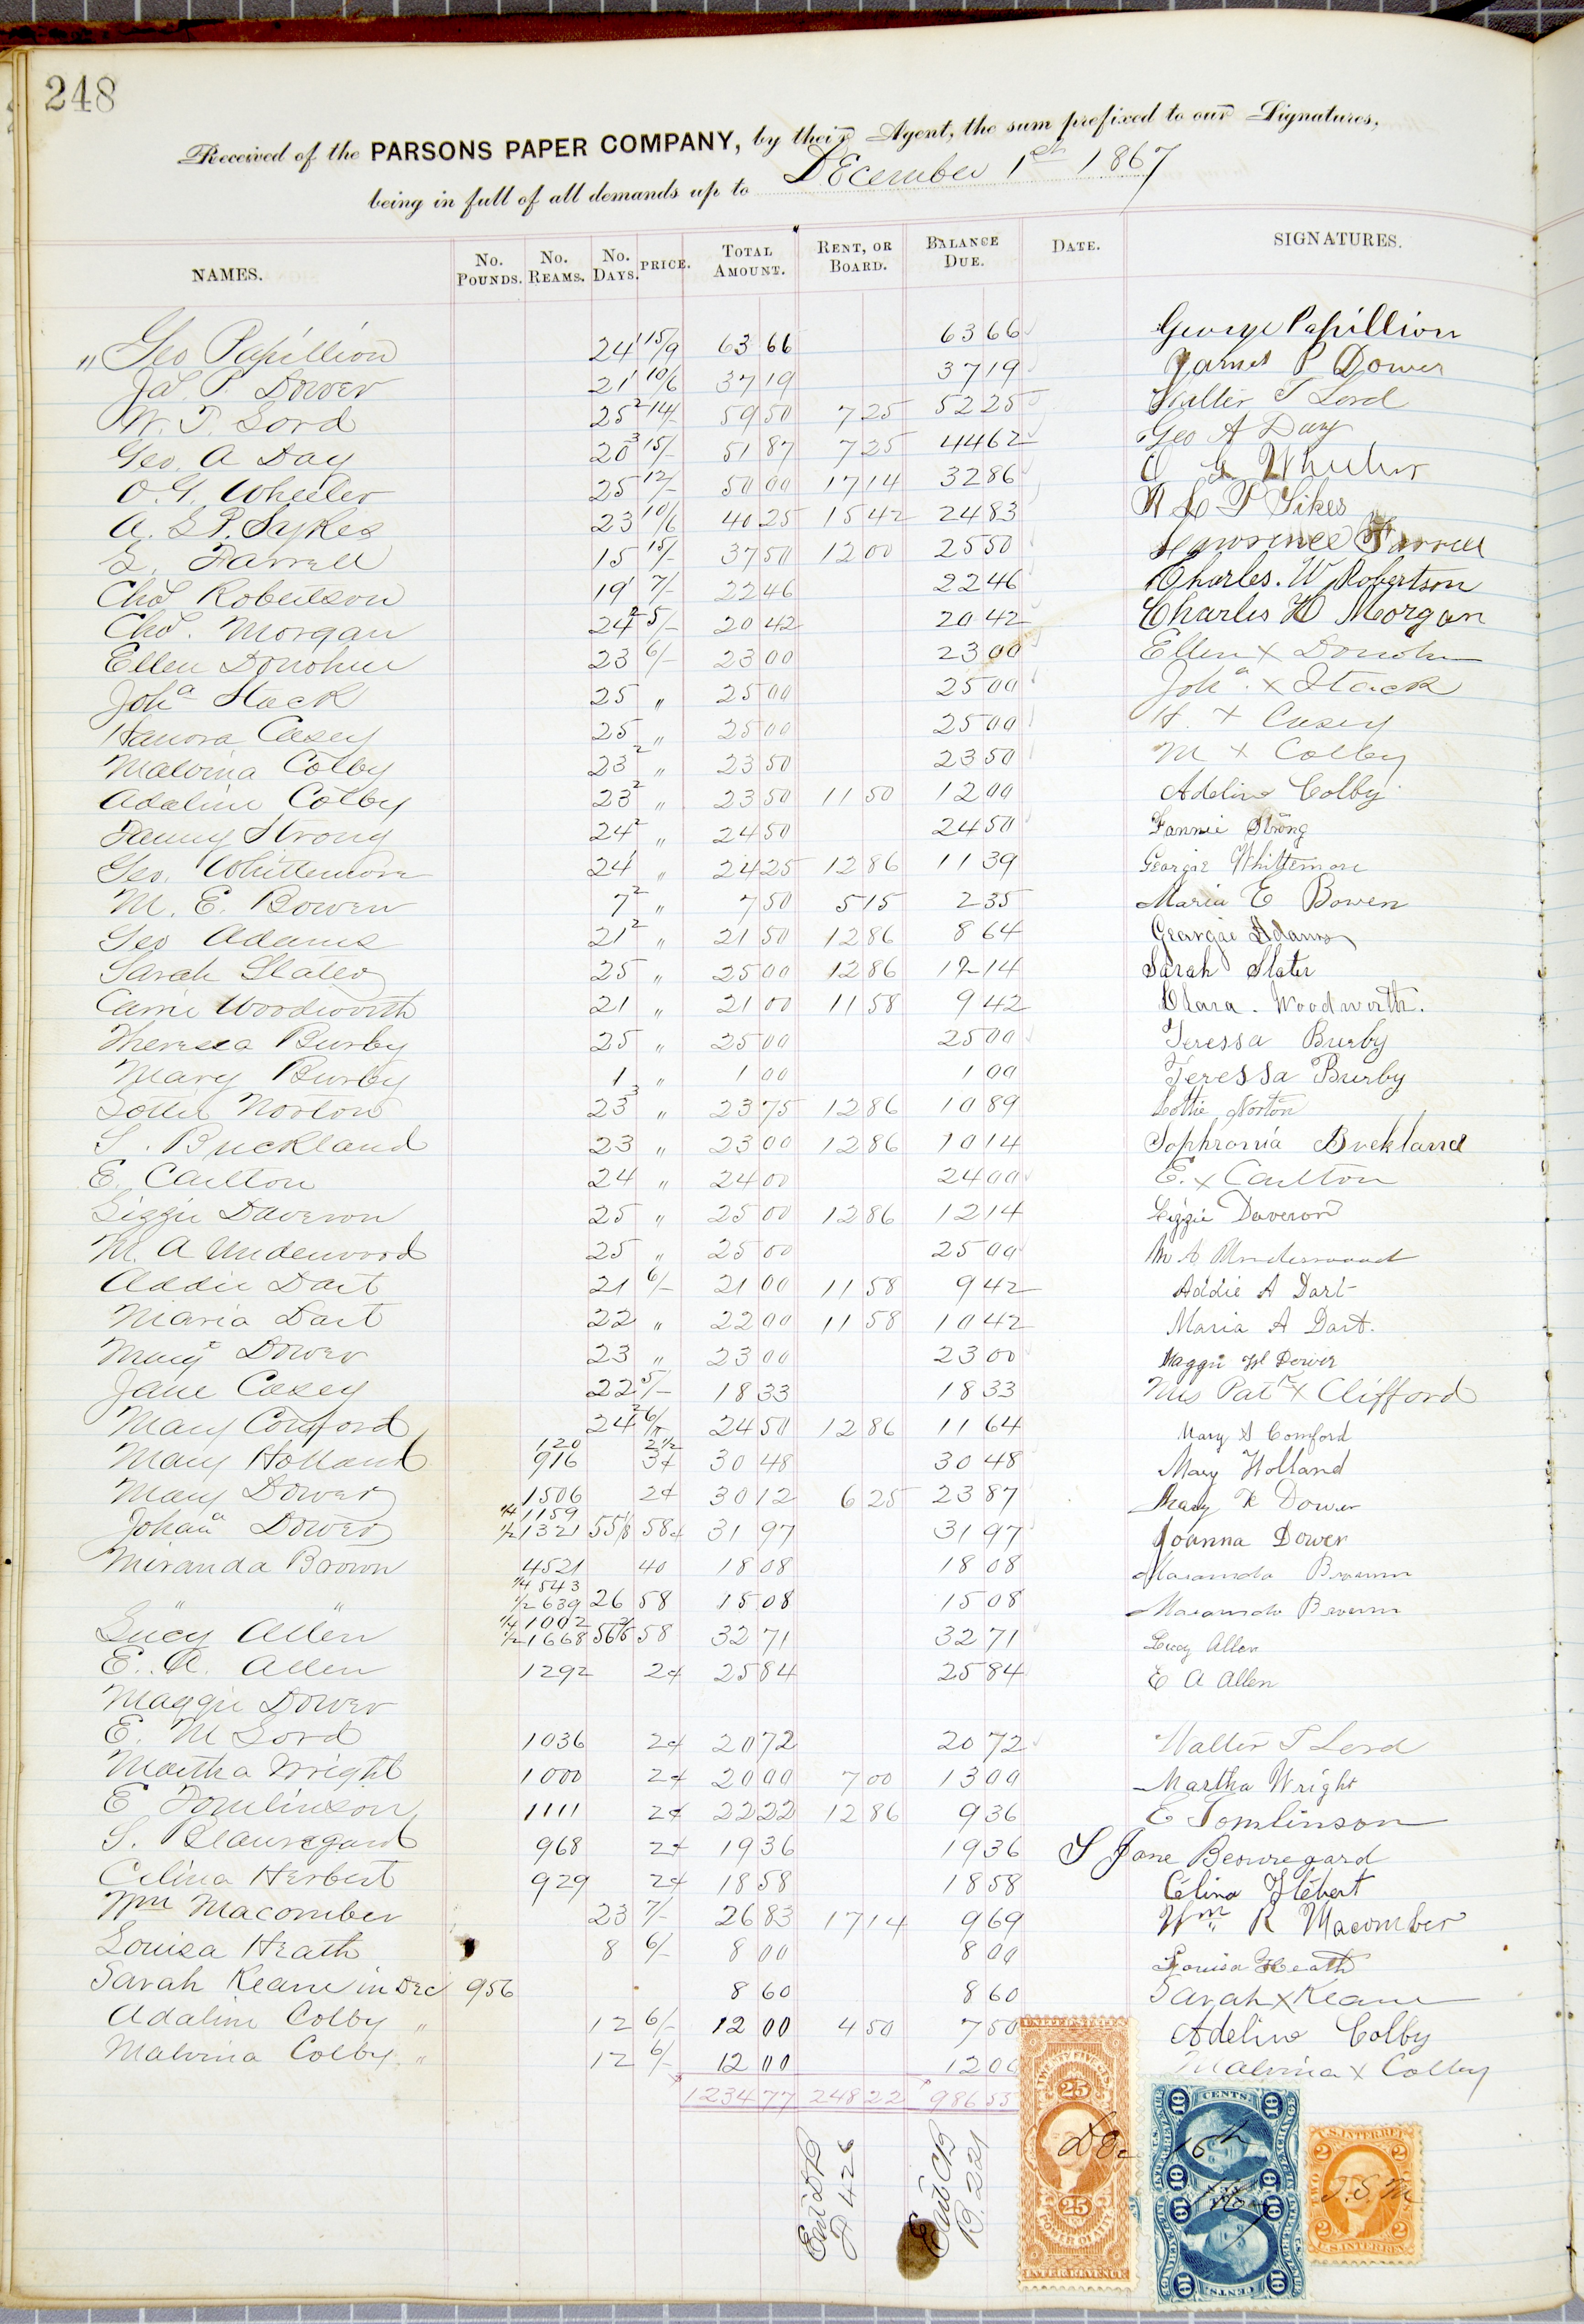 248
Received of the PARSONS PAPER COMPANY, by their Agent, the sum prefixed to our Signatures,
being in full of all demands up to December 1st 1867
NAMES. No. Pounds. No. Reams. No. Days. PRICE. Total Amount. Rent, or Board. Balance Due. Date. SIGNATURES.
" Geo Papillion 24 1 15/9 63 66 63 66 George Papillion
Jas. P. Dower 21 1 10/6 37 19 37 19 James P Dower
W. T. Lord 25 2 14/- 59 50 7 25 52 25 Walter T Lord
Geo. A Day 20 3 15/- 51 87 7 25 44 62 Geo A Day
O. G. Wheeler 25 12/- 50 00 17 14 32 86 O G Wheeler
A. L P. Sykes 23 10/6 40 25 15 42 24 83 A L P Sikes
L. Farrell 15 15/- 37 50 12 00 25 50 Lawrence Farrell
Chas Robertson 19 1 7/- 22 46 22 46 Charles. W Robertson
Chas. Morgan 24 2 5/- 20 42 20 42 Charles H Morgan
Ellen Donohue 23 6/- 23 00 23 00 Ellen x Donohue
Joha Stack 25 " 25 00 25 00 Joha. x Stack
Hanora Casey 25 " 25 00 25 00 H. x Casey
Malvina Colby 23 2 " 23 50 23 50 M x Colby
Adaline Colby 23 2 " 23 50 11 50 12 00 Adeline Colby
Fanny Strong 24 2 " 24 50 24 50 Fannie Strong
Geo. Whittemore 24 1 " 24 25 12 86 11 39 Georgie Whittemore
M. E. Bowen 7 2 " 7 50 5 15 2 35 Maria E Bowen
Geo Adams 21 2 " 21 50 12 86 8 64 Georgie Adams
Sarah Slater 25 " 25 00 12 86 12 14 Sarah Slater
Carrie Woodworth 21 " 21 00 11 58 9 42 Clara. Woodworth.
Theressa Burby 25 " 25 00 25 00 Teressa Burby
Mary Burby 1 " 1 00 1 00 Teressa Burby
Lottie Norton 23 3 " 23 75 12 86 10 89 Lottie Norton
S. Buckland 23 " 23 00 12 86 10 14 Sophronia Buckland
E. Carlton 24 " 24 00 24 00 E. x Carlton
Lizzie Daveron 25 " 25 00 12 86 12 14 Lizzie Daveron
M. A Underwood 25 " 25 00 25 00 M A Underwood
Addie Dart 21 6/- 21 00 11 58 9 42 Addie A Dart
Maria Dart 22 " 22 00 11 58 10 42 Maria A Dart.
Magt Dower 23 " 23 00 23 00 Maggie M Dower
Jane Casey 22 5/- 18 33 18 33 Mrs Patk x Clifford
Mary Comford 24 2 6/- 24 50 12 86 11 64 Mary A Comford
120 2 1/2
Mary Holland 916 3¢ 30 48 30 48 Mary Holland
Mary Dower 1506 2¢ 30 12 6 25 23 87 Mary K Dower
1/4 1159
Johana Dower 1/2 1321 55 1/8 58¢ 31 97 31 97 Joanna Dower
Miranda Brown 4521 40 18 08 18 08 Maranda Brown
1/4 543
" " 1/2 639 26 58 15 08 15 08 Maranda Brown
1/4 1002
Lucy Allen 1/2 1668 58 32 71 32 71 Lucy Allen
E. A. Allen 1292 2¢ 25 84 25 84 E A Allen
Maggie Dower
E. M Lord 1036 2¢ 20 72 20 72 Walter T Lord
Martha Wright 1000 2¢ 20 00 7 00 13 00 Martha Wright
E Tomlinson 1111 2¢ 22 22 12 86 9 36 E Tomlinson
S. Beauregard 968 2¢ 19 36 19 36 S Jane Beauregard
Celina Herbert 929 2¢ 18 58 18 58 Célina Hébert
Wm Macomber 23 7/- 26 83 17 14 9 69 Wm R Macomber
Louisa Heath 8 6/- 8 00 8 00 Louisa Heath
Sarah Keane in Dec 956 8 60 8 60 Sarah x Keane
Adaline Colby " 12 6/- 12 00 4 50 7 50 Adeline Colby
Malvina Colby " 12 6/- 12 00 12 00 Malvina x Colby
1234 77 248 22 986 55
Ent DB P 426
Ent CB P. 221
TWENTY FIVE CTS. 25 25 POWER OF ATTY INTER. REVENUE
Dec 16th
10 CENTS. 10 U.S. INTER. REVENUE
10 CENTS. 10
U.S. INTER. REV. 2 2 T.S.M U.S. INTER. REV.